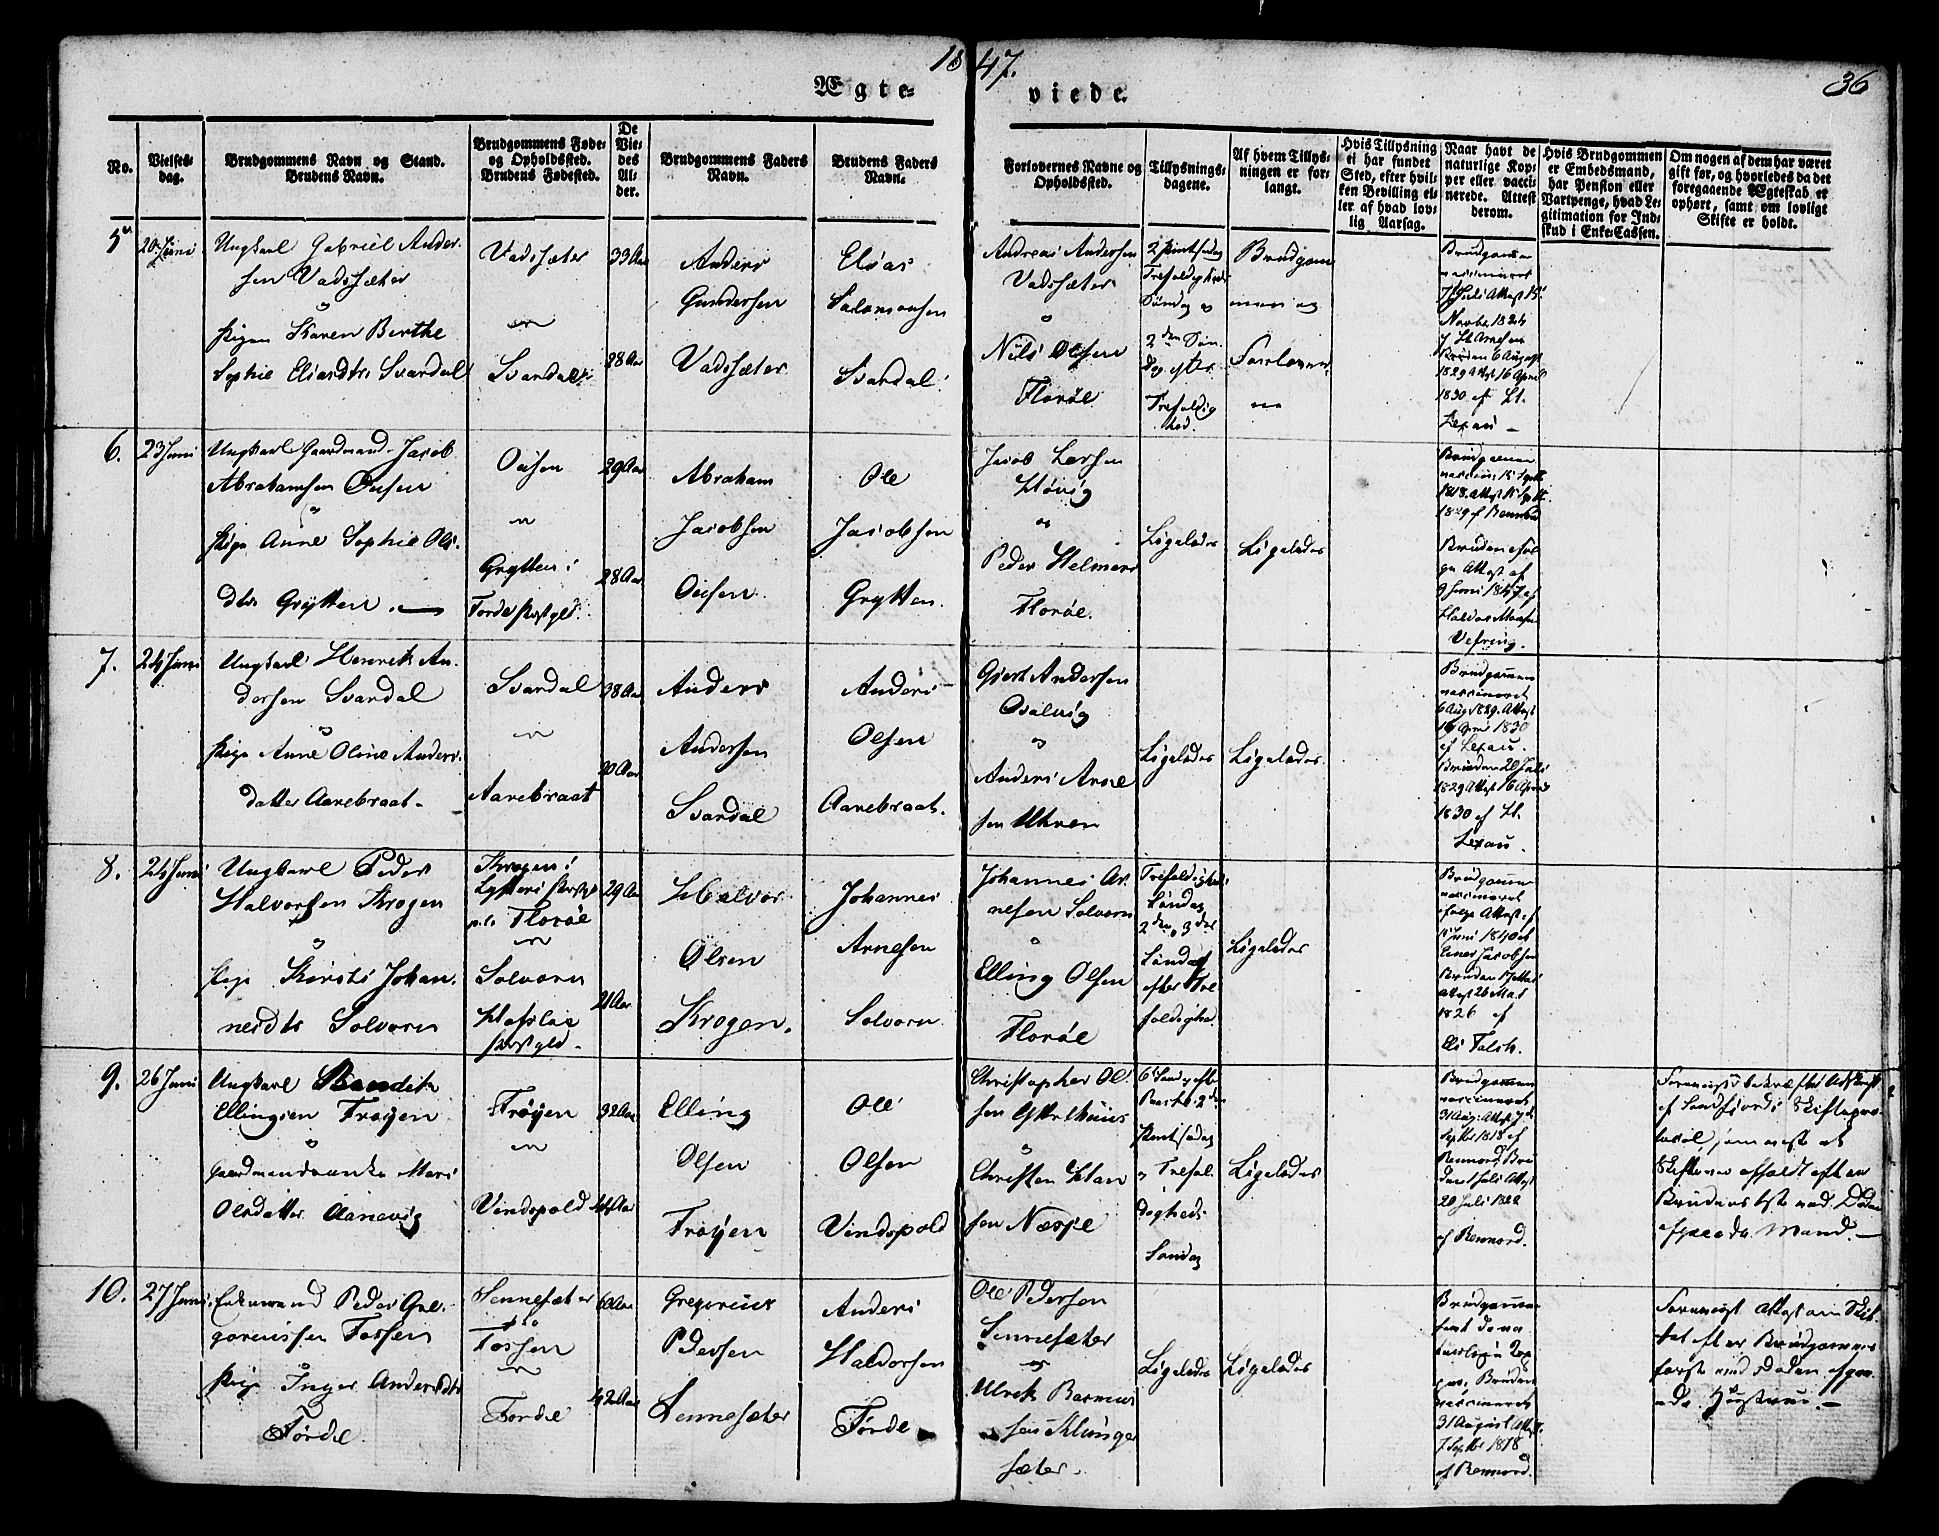 1847.
36
Ægte-
viede.
No.
Vielses-
dag.
Brudgommens Navn og Stand.
Brudens Navn.
Brudgommens Føde-
og Opholdssted.
Brudens Fødested.
De
Vie-
des
Al-
der.
Brudgommens Faders
Navn.
Brudens Faders
Navn.
Forlovernes Navne og
Opholdssted.
Tillysnings-
dagene.
Af hvem Tillys-
ningen er for-
langt.
Hvis Tillysning
ei har fundet
Sted, efter hvil-
ken Bevilling el-
ler af hvad lov-
lig Aarsag.
Naar havt de
naturlige Kop-
per eller vacci-
nerede. Attest
derom.
Hvis Brudgommen
er Embedsmand,
har Pension eller
Vartpenge, hvad Le-
gitimation for Ind-
skud i Enke-Cassen.
Om nogen af dem har været
gift før, og hvorledes da det
foregaaende Ægteskab er
ophørt, samt om lovligt
Skifte er holdt.
5
20 Juni
Ungkarl Gabriel Ander-
sen Vadsæter
og
Pigen Karen Berthe
Sophie Eliasdtr Svardal
Vadsæter
Svardal
33 Aar
28 Aar
Anders
Gundersen
Vadsæter
Elias
Salomonsen
Svardal
Andreas Andersen
Vadsæter
og
Nils Olsen
Florøe
2 Pintsedag
Trefoldigheds
Søndag og
2den Søn-
dag efter
Trefoldig
hed.
Brudgom
men og
Forlover
ne
Brudgommen
vaccineret
7 Juli Attest 15
Novbr. 1824
Bruden 6 August
1829 Attest 16 April
1830 af Lt.
Lexau
6.
23 Juni
Ungkarl Gaardmand Jacob
Abrahamsen Ousen
og
Pige Anne Sophie Ols-
dtr Grytten
Ousen
Grytten i
Førde Præstgld.
29 Aar
28 Aar
Abraham
Jacobsen
Ousen
Ole
Jacobsen
Grytten.
Jacob Larsen
Høvig
og
Peder Helmers
Florøe.
Ligeledes
Ligeledes
Brudgommen
1818. Attest
1829 af Rennord
Bruden
Attest af
9 Juni 1847 af
Vefring.
7.
24 Juni
Ungkarl Henrik An-
dersen Svardal
og
Pige Anne Oline Anders-
datter Aarebraat
Svardal
Aarebraat
28 Aar
20 Aar
Anders
Andersen
Svardal
Anders
Olsen
Aarebraat.
Giert Andersen
og
Anders Arne
sen
Ligeledes
Ligeledes
Brudgommen
vaccineret
6 Aug 1829. Attest
16 April 1830
af Lexau.
Bruden 20 Juli
1829 Attest 16 April
1830 af Lt.
Lexau.
8.
24 Juni
Ungkarl Peder
Halvorsen Krogen
og
Pige Kirsti Johan-
nesdtr Solvorn
Krogen i
Lysters Præstgld
Florøe
Solvorn
Hafsloe
Præstgld.
29 Aar
21 Aar
Halvor
Olsen
Krogen.
Johannes
Arnesen
Solvorn
Johannes Ar-
nesen Solvorn
og
Elling Olsen
Florøe
Trefoldigheds
Søndag
2den og 3die
Søndag
efter Tre
foldighed
Ligeledes
Brudgommen
vaccineret
ifølge Attest af
Juni 1840 af
Einer Jacobsen
Bruden
Attest 26 Mai
1826 af
9.
26 Juni
Ungkarl Bendik
Ellingsen Frøyen
og
Gaardmandsenke Mari
Olsdatter Aanevig
Frøyen
Vindspold
32 Aar
44 Aar
Elling
Olsen
Frøyen
Ole
Olsen
Vindspold
Christopher Ol-
sen Ytrehuus
og
Christen Han
sen Næsje
6 Sondag efter
Paaske 2den
Pintsedag
og Trefol-
digheds
Søndag
Ligeledes
Brudgommen
vaccineret
31 Aug. Attest 7de
Septbr 1818 af
Rennord, Bru
den Juli Attest
20 Juli 1822
af Rennord.
Foreviist bekræftet Udskrift
af Søndfjords Skiftepro-
tocol, som viser at
Skifte er afholdt efter
Brudens ved Døden
afgaaede Mand.
10.
27 Juni
Enkemand Peder Gre-
goriussen Fossen
Pige Inger Andersdtr
Førde
Sennesæter
Fossen
Førde
60 Aar
42 Aar
Gregorius
Pedersen
Sennesæter
Anders
Haldorsen
Førde
Ole Pedersen
Sennesæter
og
Ulrik Rasmus
sen Klungre
sæter.
Ligeledes
Ligeledes
Brudgommen
havt de na
turlige Kop
per. Bruden
vaccineret
31 August Attest
7 Septbr 1818
af Rennord.
Foreviist Attest om Skif-
tet efter Brudgommens
første ved Døden afgaa-
ede Hustrue.